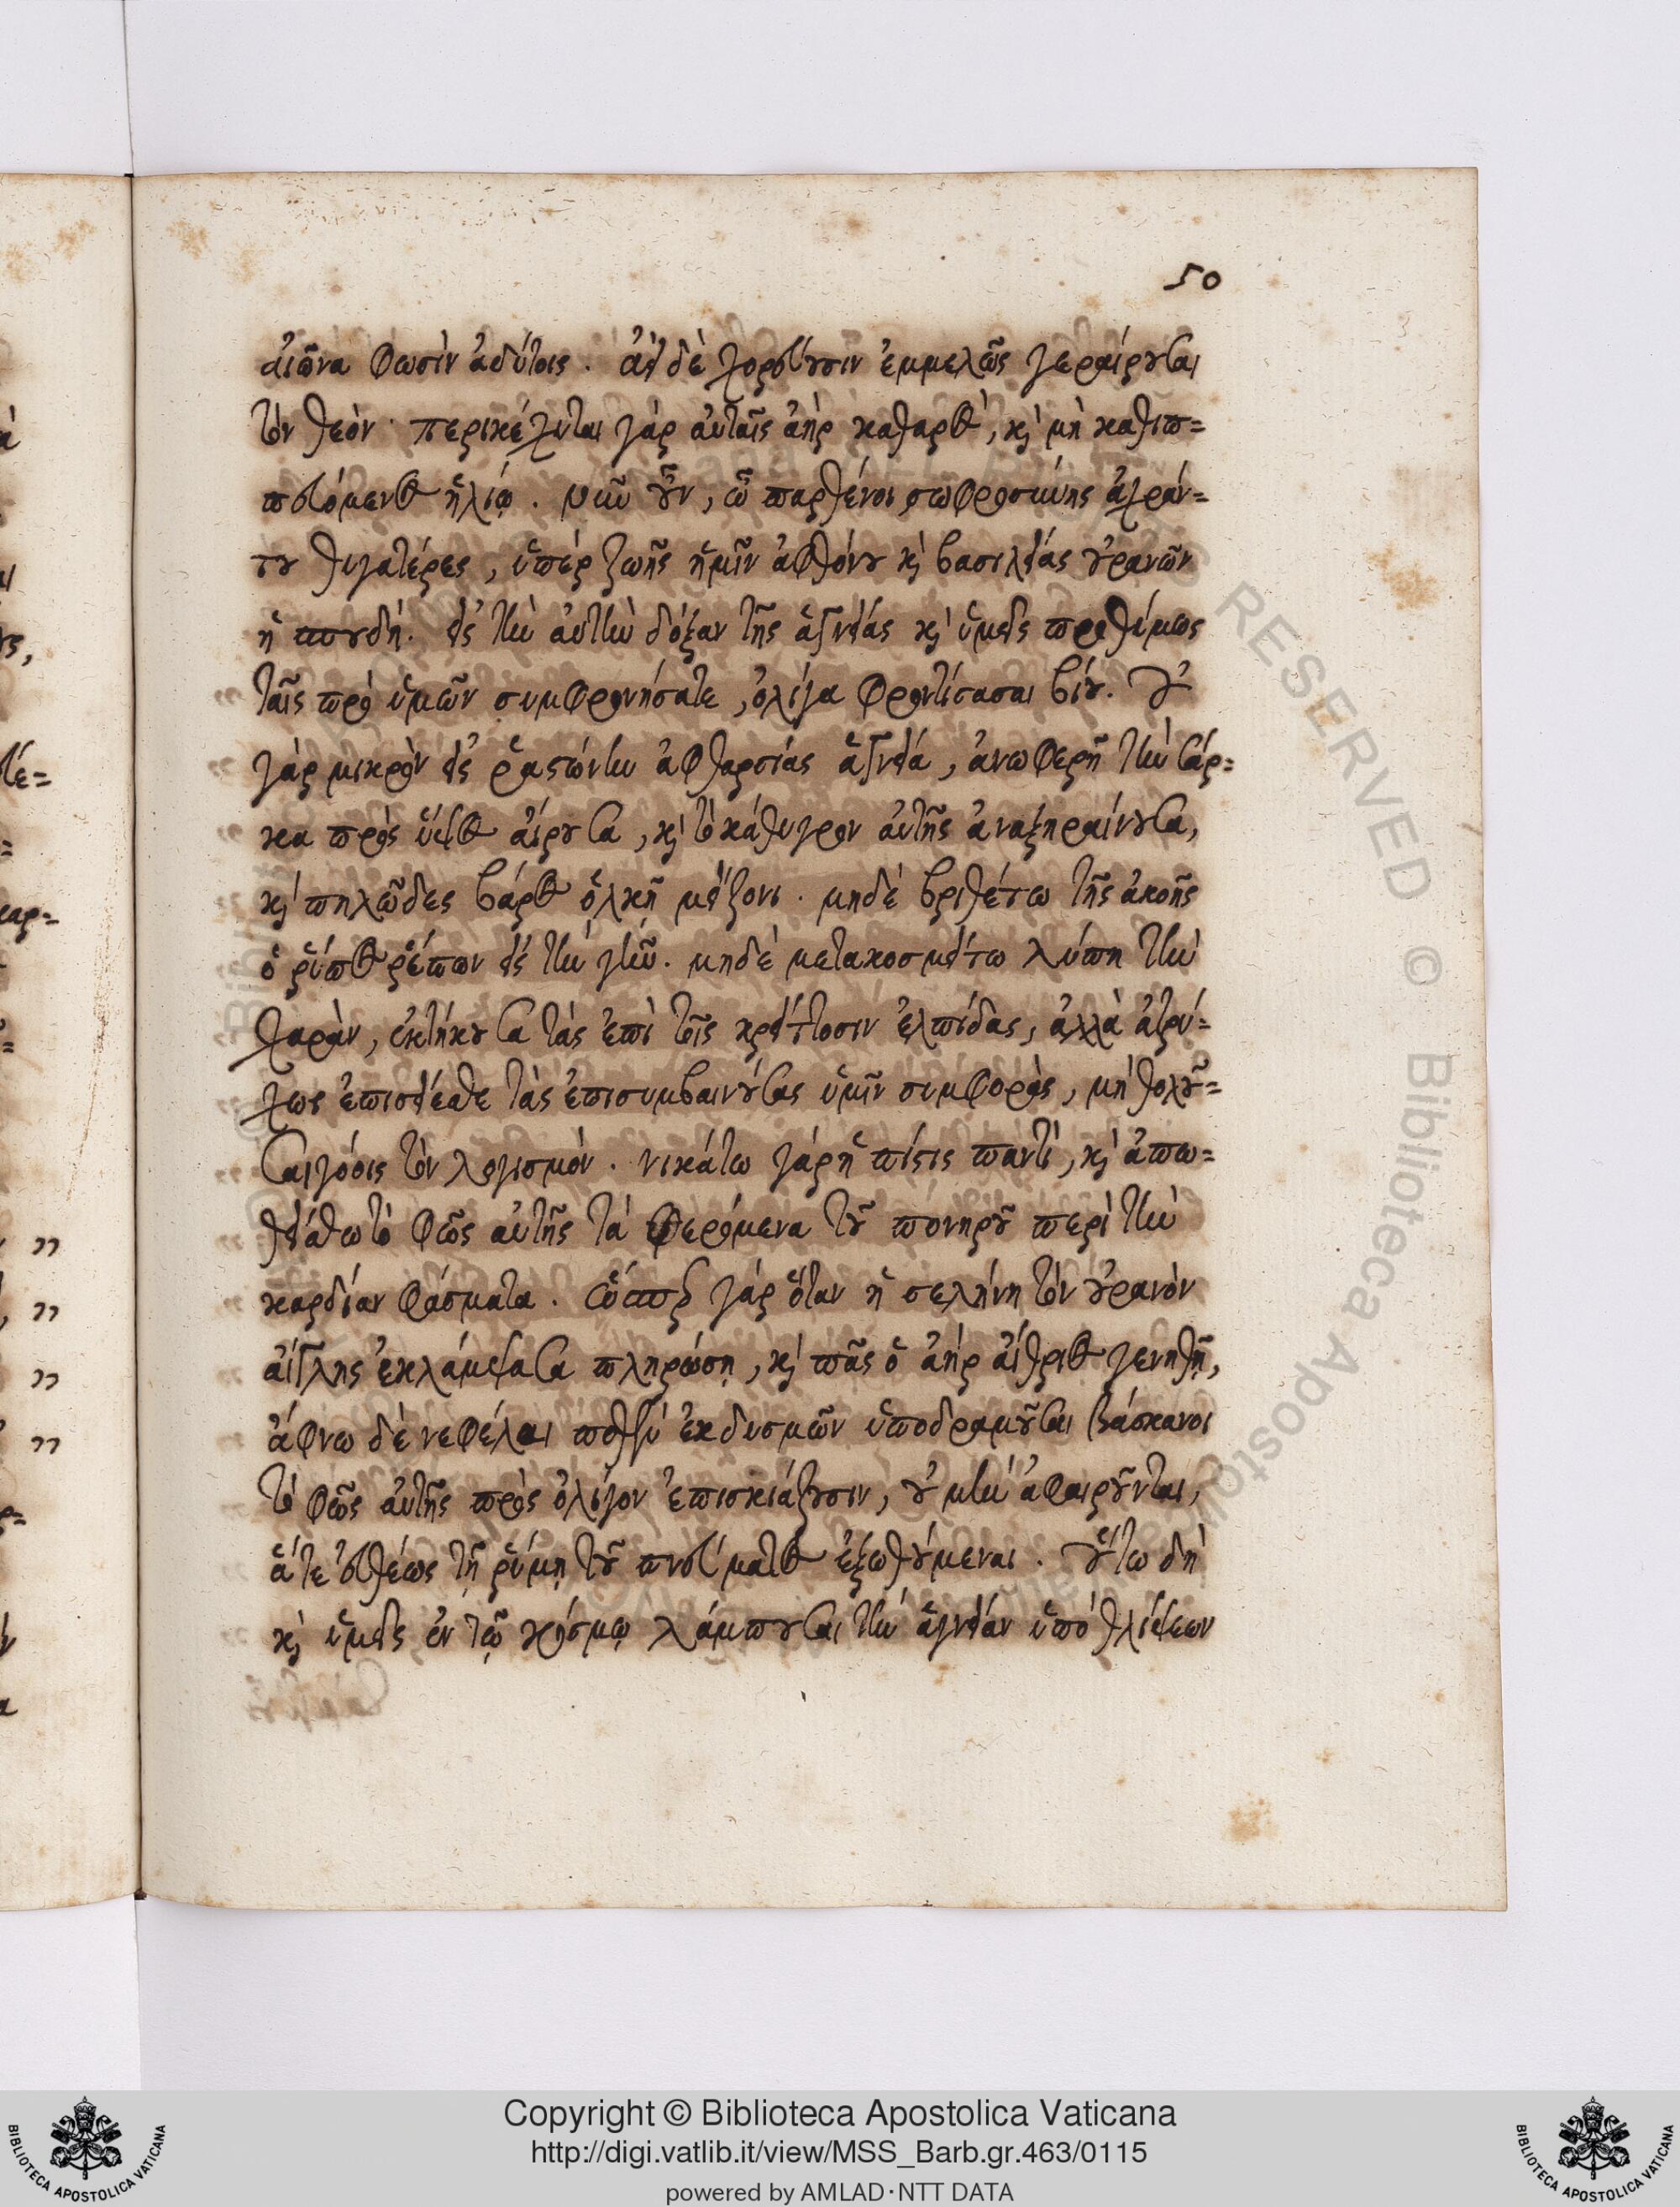 50
αἰῶνα φωσὶν ἀδύτοις. ἀεὶ δὲ χορεύουσιν ἐμμελῶς γεραίρουσαι
τὸν θεόν· περικέχυται γὰρ αὐταῖς ἀὴρ καθαρὸς, καὶ μὴ καθιπ=
πευόμενος ἡλίῳ. νῦν οὖν, ὦ παρθένοι, σωφροσύνης ἀχράν=
του θυγατέρες, ὑπὲρ ζωῆς ἡμῖν ἀφθόνου καὶ βασιλείας οὐρανῶν
ἡ σπουδή. εἰς τὴν αὐτὴν δόξαν τῆς ἁγνείας καὶ ὑμεῖς προθύμως
ταῖς πρὸ ὑμῶν συμφρονήσατε, ὀλίγα φροντίσασαι βίου. οὐ
γὰρ μικρὸν εἰς ῥαστώνην ἀφθαρσίας ἁγνεία, ἀνωφερῆ τὴν σάρ=
κα πρὸς ὕψος αἴρουσα, καὶ τὸ κάθυγρον αὐτῆς ἀναξηραίνουσα,
καὶ πηλῶδες βάρος ὁλκῇ μείζονι. μηδὲ βριθέτω τῆς ἀκοῆς
ὁ ῥύπος ῥέπων εἰς τὴν γῆν. μηδὲ μετακοσμείτω λύπη τὴν
χαρὰν, ἐκτήκουσα τὰς ἐπὶ τοῖς κρείττοσιν ἐλπίδας, ἀλλὰ ἀτρύ=
χως ἐπισείεσθε τὰς ἐπισυμβαινούσας ὑμῖν συμφορὰς, μὴ θολοῦ=
σαι γόοις τὸν λογισμόν. νικάτω γὰρ ἡ πίστις παντὶ, καὶ ἀπω=
θείσθω τὸ φῶς αὐτῆς τὰ φερόμενα τοῦ πονηροῦ περὶ τὴν
καρδίαν φάσματα. ὥσπερ γὰρ ὅταν ἡ σελήνη τὸν οὐρανὸν
αἴγλης ἐκλάμψασα πληρώσῃ, καὶ πᾶς ὁ ἀὴρ αἴθριος γενηθῇ,
ἄφνω δὲ νεφέλαι ποθὲν ἐκ δυσμῶν ὑποδραμοῦσαι βάσκανοι
τὸ φῶς αὐτῆς πρὸς ὀλίγον ἐπισκιάζουσιν, οὐ μὴν ἀφαιροῦνται,
ἅτε εὐθέως τῇ ῥύμῃ τοῦ πνεύματος ἐξωθούμεναι. οὕτω δὴ
καὶ ὑμεῖς ἐν τῷ κόσμῳ λάμπουσαι τὴν ἁγνείαν ὑπὸ θλίψεων
Copyright © Biblioteca Apostolica Vaticana
http://digi.vatlib.it/view/MSS_Barb.gr.463/0115
powered by AMLAD·NTT DATA
BIBLIOTECA APOSTOLICA VATICANA
BIBLIOTECA APOSTOLICA VATICANA